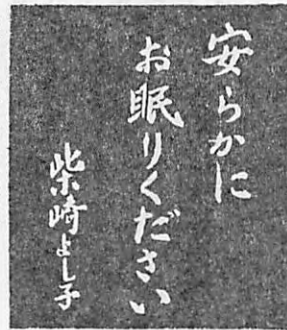 安らかに
お眠りください
柴崎よし子